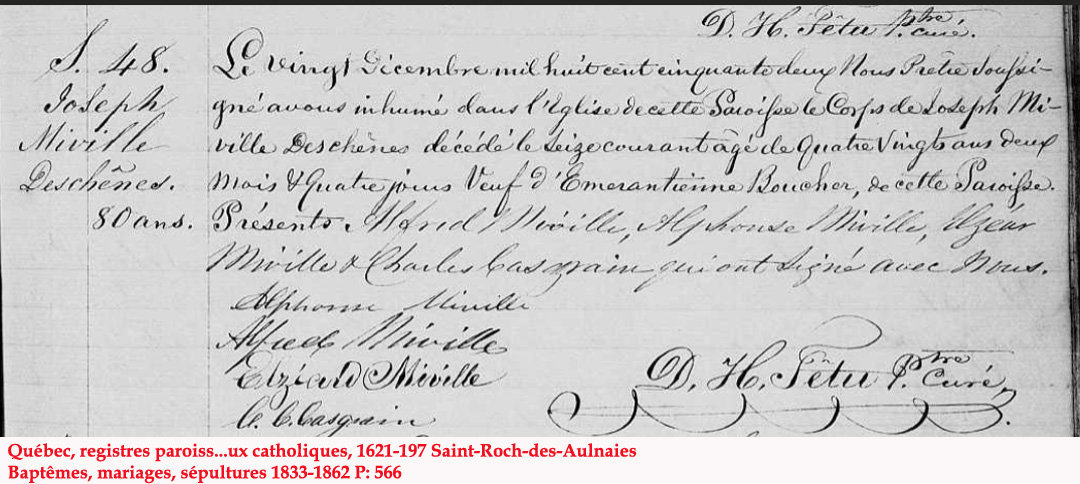 D. H. Têtu Ptre curé.
S. 48.
Joseph
Miville
Deschênes.
80 ans.
Le vingt Décembre mil huit cent cinquante deux Nous Prêtre Soussi-
gné avons inhumé dans l'Eglise de cette Paroisse le Corps de Joseph Mi-
ville Deschênes décédé le Seize courant âgé de Quatre Vingts ans deux
mois & Quatre jours Veuf d'Emerantienne Boucher, de cette Paroisse.
Présents Alfred Miville, Alphonse Miville, Elzéar
Miville & Charles Casgrain qui ont Signé avec Nous.
Alphonse Miville
Alfred Miville
Elzéard Miville
C. E. Casgrain
D. H. Têtu Ptre Curé,
Québec, registres paroiss...ux catholiques, 1621-197 Saint-Roch-des-Aulnaies
Baptêmes, mariages, sépultures 1833-1862 P: 566